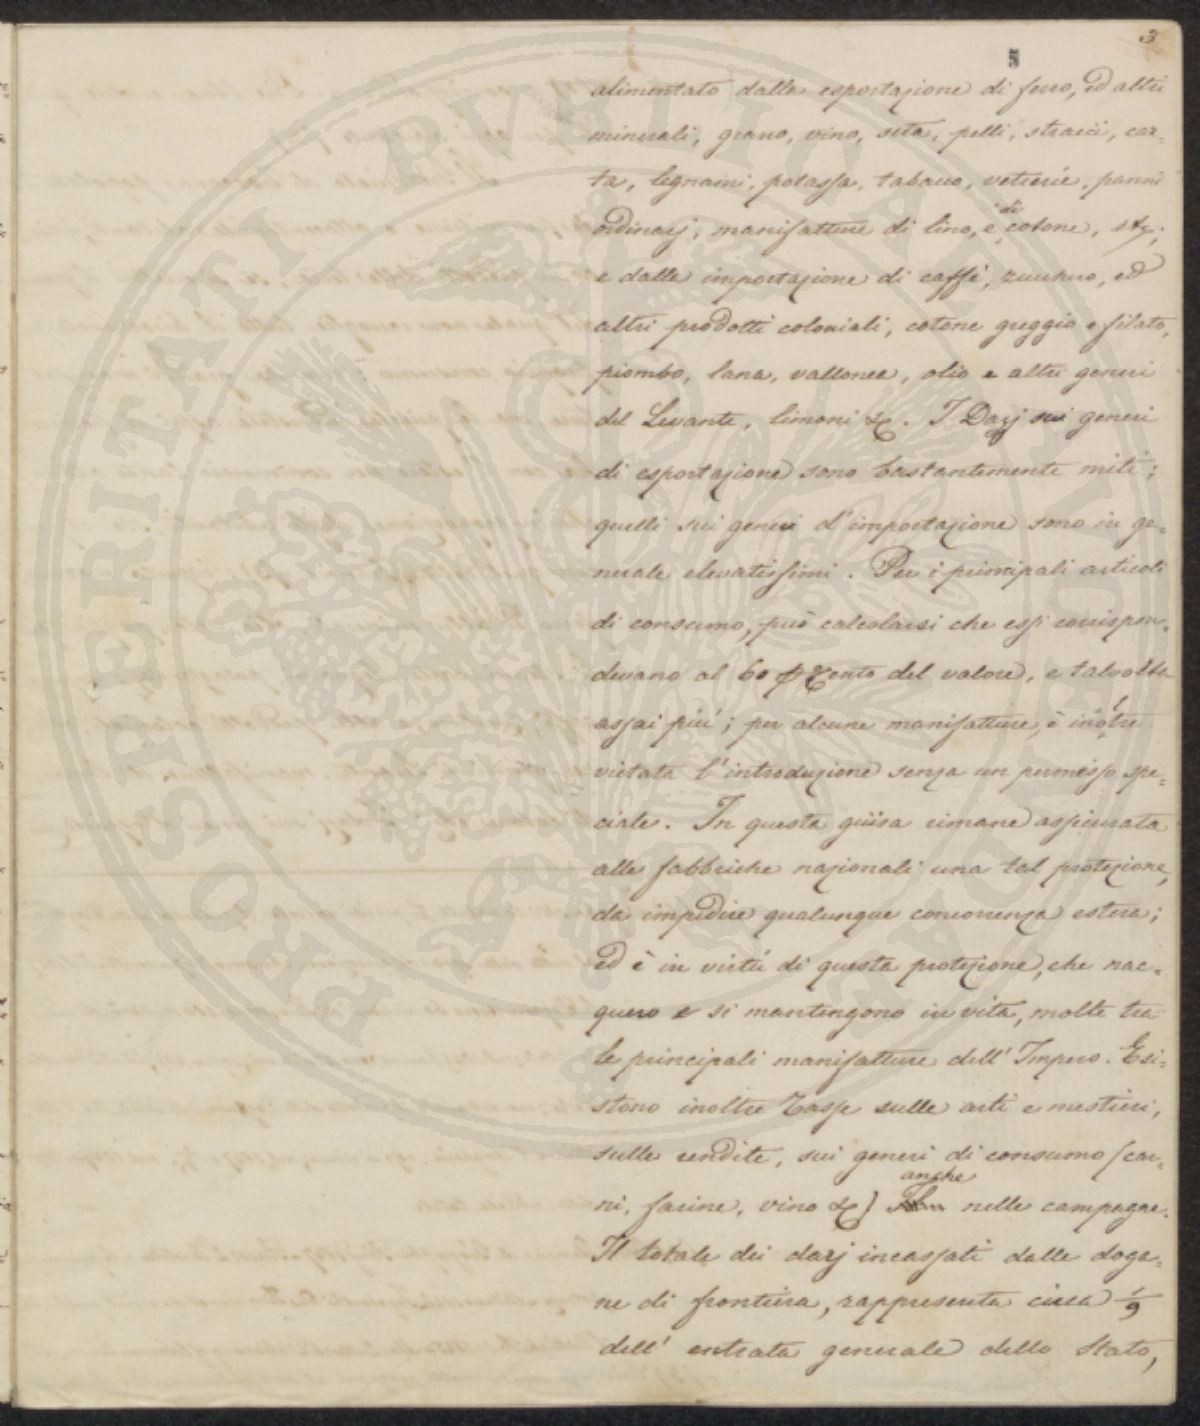 3
5
alimentato dalla esportazione di ferro, ed altri
minerali, grano, vino, seta, pelli, stracci, car-
ta, legnami, potassa, tabacco, vetrerie, panni
ordinarj, manifatture di lino, e di cotone, &c;
e dalla importazione di caffè, zucchero, ed
altri prodotti coloniali, cotone greggio e filato,
piombo, lana, vallonea, olio e altri generi
del Levante, limoni &c. I Dazj sui generi
di esportazione sono bastantemente miti;
quelli sui generi d'importazione sono in ge-
nerale elevatissimi. Per i principali articoli
di consumo, può calcolarsi che essi corrispon-
devano al 60 p cento del valore, e talvolta
assai più; per alcune manifatture, è inoltre
vietata l'introduzione senza un permesso spe-
ciale. In questa guisa rimane assicurata
alle fabbriche nazionali una tal protezione,
da impedire qualunque concorrenza estera;
ed è in virtù di questa protezione, che nac-
quero e si mantengono in vita, molte tra
le principali manifatture dell'Impero. Esi-
stono inoltre Tasse sulle arti e mestieri,
sulle rendite, sui generi di consumo (car-
ni, farine, vino &c) anche nelle campagne.
Il totale dei dazj incassati dalle doga-
ne di frontiera, rappresenta circa 1/9
dell'entrata generale dello Stato,
PROSPERITATI PVBLICAE